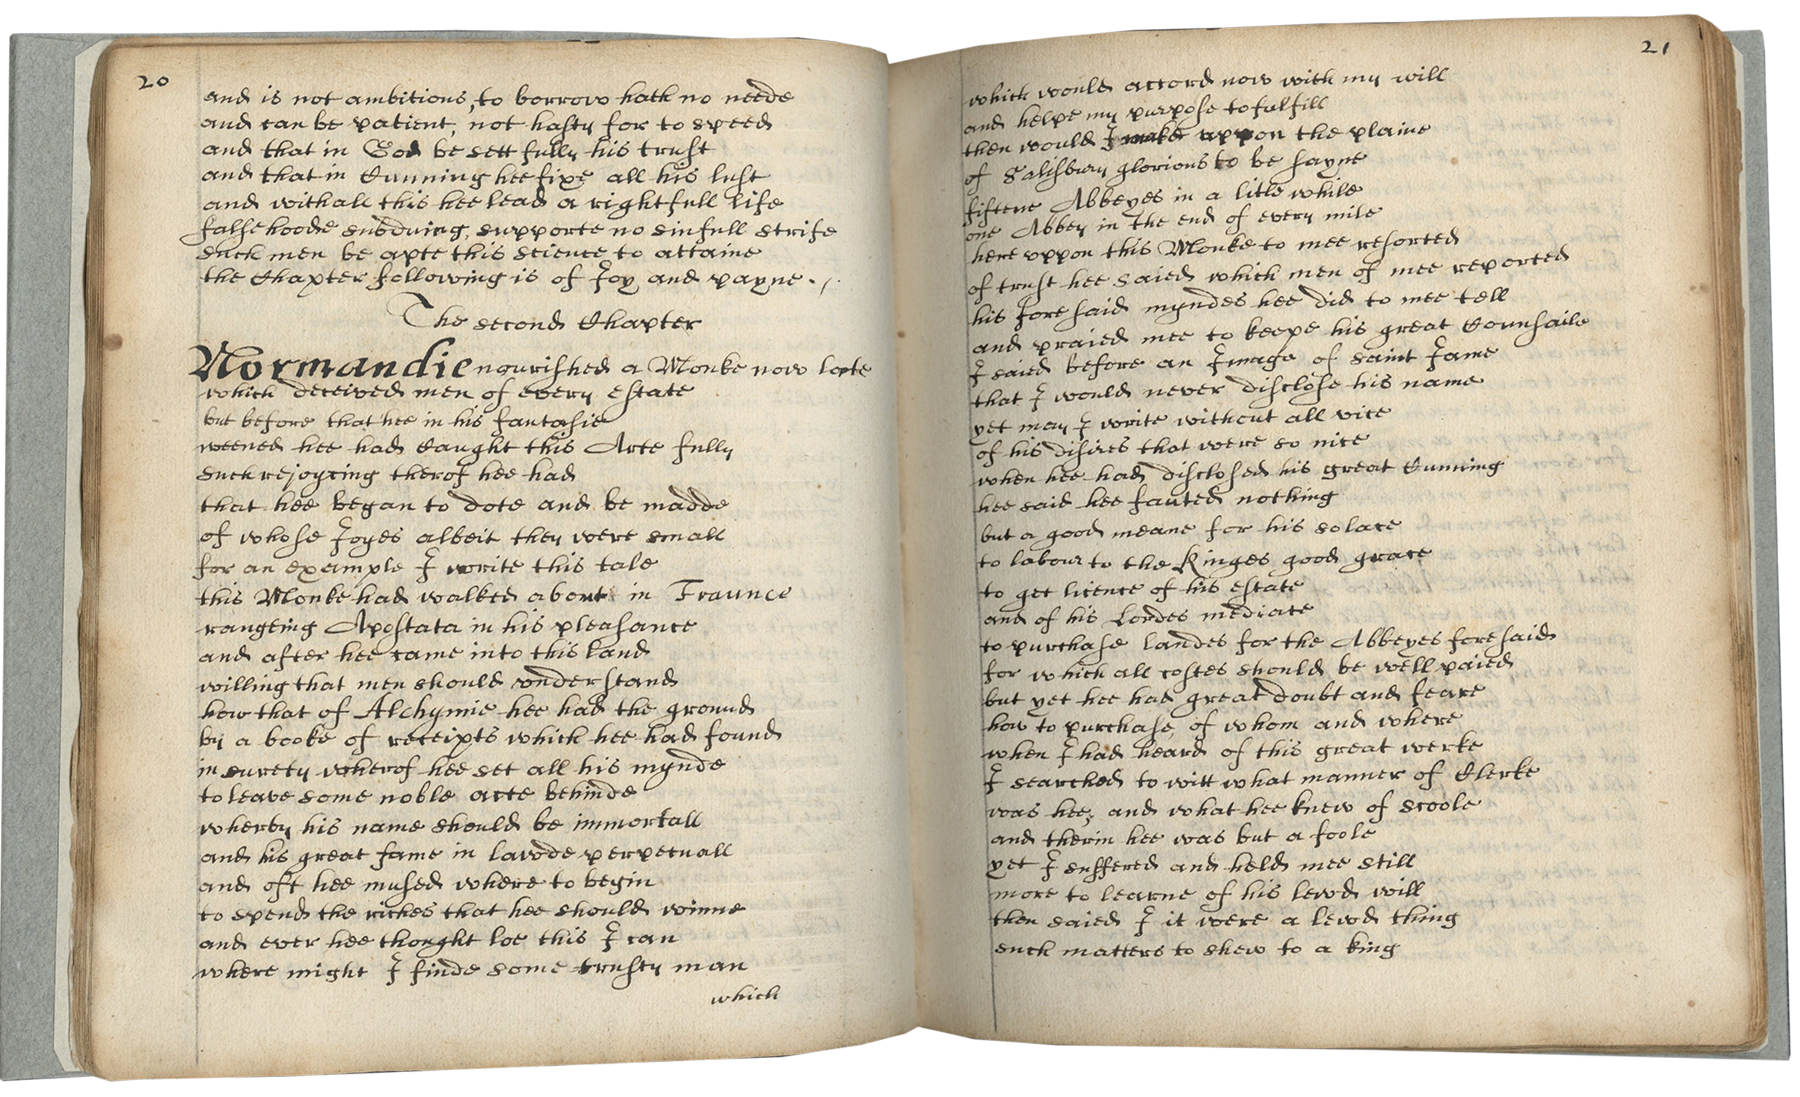 20
and is not ambitious, to borrow hath no neede
and can be patient, not hasty for to speed
and that in God he sett fully his trust
and that in Cunning hee fixe all his lust
and withall this hee lead a rightfull life
falsehoode subduing, supporte no sinfull strife
such men be apte this science to attaine
the Chapter following is of Joy and payne
The second Chapter
Normandie nourished a Monke now late
which deceived men of every estate
but before that hee in his fantasie
weened hee had caught this Arte fully
such rejoycing therof hee had
that hee began to dote and be madde
of whose Joyes albeit they were small
for an example I write this tale
this Monke had walked about in Fraunce
rangeing Apostata in his pleasance
and after hee came into this land
willing that men should vnderstand
how that of Alchymie hee had the ground
by a booke of receipts which hee had found
in surety wherof hee set all his mynde
to leave some noble acte behinde
wherby his name should be immortall
and his great fame in lawde perpetuall
and oft hee mused where to begin
to spend the riches that hee should winne
and ever hee thought loe this I can
where might I finde some trusty man
which
21
which would accord now with my will
and helpe my purpose to fulfill
then would I make vppon the plaine
of Salisbury glorious to be sayne
fiftene Abbeyes in a litle while
one Abbey in the end of every mile
here vppon this Monke to mee resorted
of trust hee saied which men of mee reported
his fore said myndes hee did to mee tell
and praied mee to keepe his great Counsaile
I saied before an Image of saint Jame
that I would never disclose his name
yet may I write without all vice
of his disires that were so nice
when hee had disclosed his great Cunning
hee said hee fauted nothing
but a good meane for his solace
to labour to the Kinges good grace
to get licence of his estate
and of his Lordes mediate
to purchase landes for the Abbeyes foresaid
for which all costes should be well paied
but yet hee had great doubt and feare
how to purchase, of whom and where
when I had heard of this great werke
I searched to witt what manner of Clerke
was hee, and what hee knew of scoole
and therin hee was but a foole
yet I suffered and held mee still
more to learne of his lewd will
then saied I it were a lewd thing
such matters to shew to a king